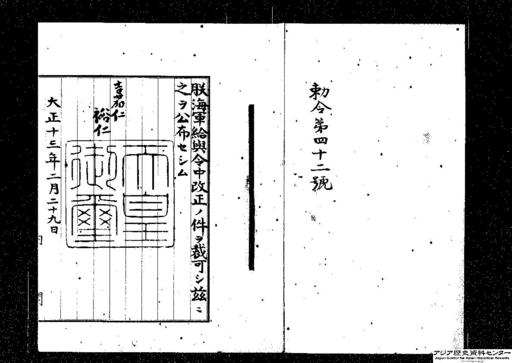 勅令第四十二號
朕海軍給與令中改正ノ件ヲ裁可シ茲ニ
之ヲ公布セシム
嘉仁
裕仁
天皇
御璽
大正十三年二月二十九日
アジア歴史資料センター
Japan Center for Asian Historical Records